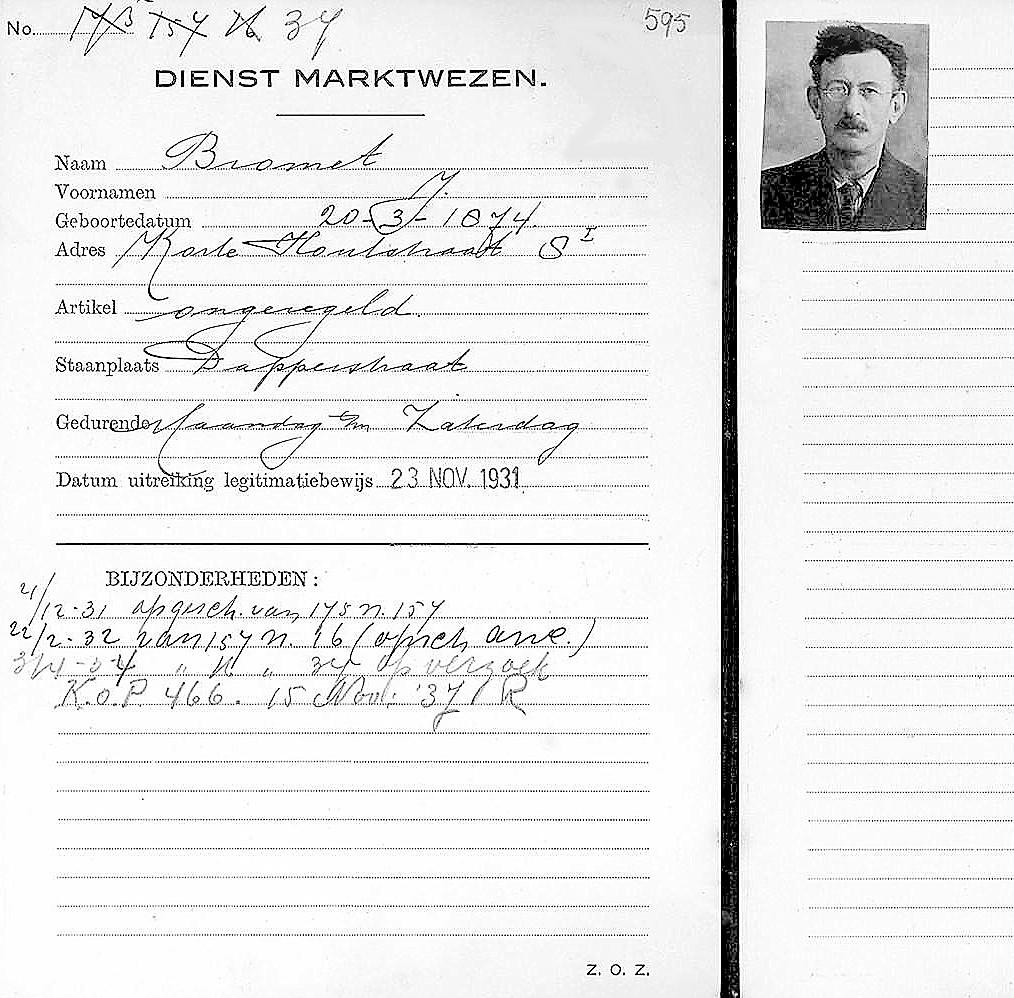 No. 173 157 16 37 595
DIENST MARKTWEZEN.
Naam Bromet
Voornamen J.
Geboortedatum 20-3-1874.
Adres Korte Houtstraat 8 I
Artikel ongeregeld.
Staanplaats Dapperstraat
Gedurende Maandag t/m Zaterdag
Datum uitreiking legitimatiebewijs 23 NOV. 1931
BIJZONDERHEDEN:
21/12-31 opgesch. van 175 n. 157
22/2-32 van 157 n. 16 (opsch. anc.)
3/4-34 " 16 " 37 op verzoek
K.o.P. 466. 15 Nov. '37 R
Z. O. Z.